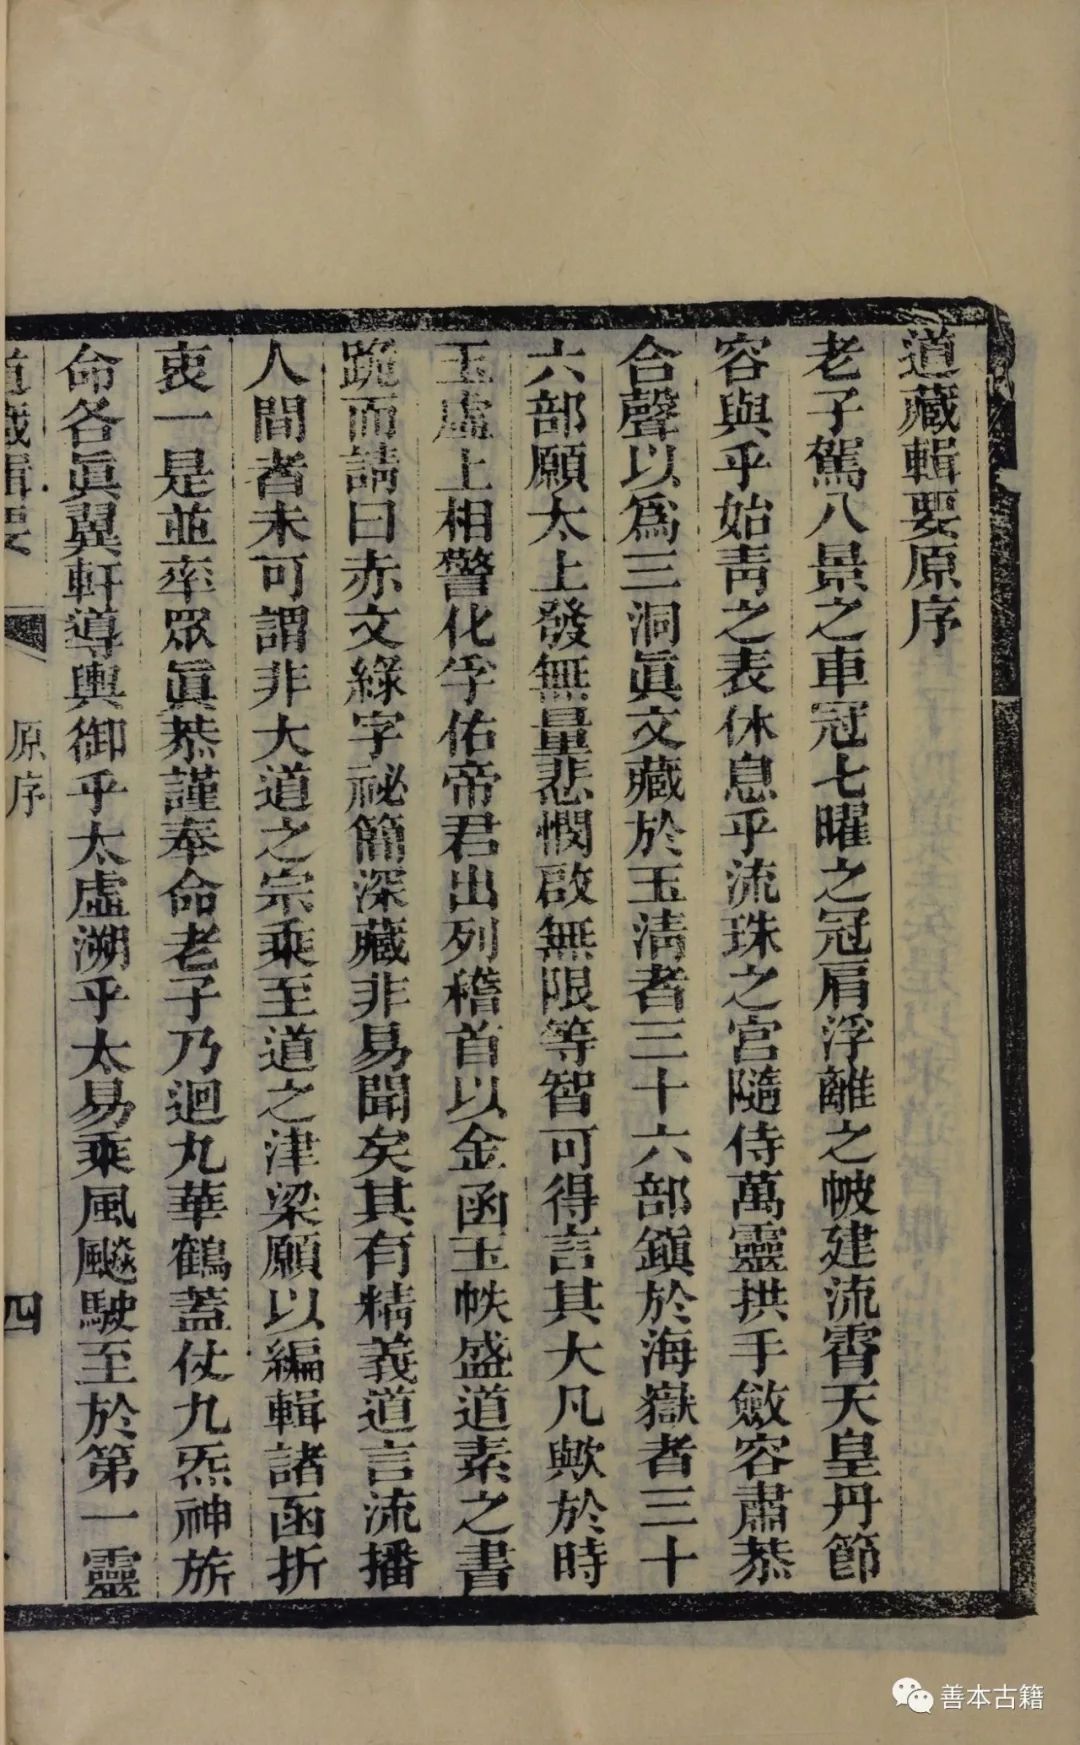 道藏輯要原序
老子駕八景之車冠七曜之冠肩浮離之帔建流霄天皇丹節
容與乎始青之表休息乎流珠之宮隨侍萬靈拱手斂容肅恭
合聲以爲三洞眞文藏於玉清者三十六部鎮於海嶽者三十
六部願太上發無量悲憫啟無限等智可得言其大凡歟於時
玉虛上相警化孚佑帝君出列稽首以金函玉帙盛道素之書
跪而請曰赤文綠字祕簡深藏非易聞矣其有精義道言流播
人間者未可謂非大道之宗乘至道之津梁願以編輯諸函折
衷一是並率眾眞恭謹奉命老子乃迴九華鶴蓋仗九炁神旂
命各眞翼軒導輿御乎太虛溯乎太易乘風飈駛至於第一靈
道藏輯要
原序
四
善本古籍